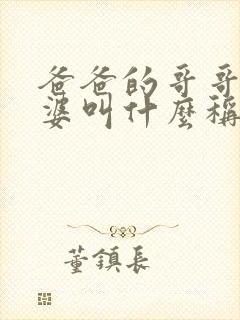 爸爸的哥哥
婆叫什麼稱
董鎮長